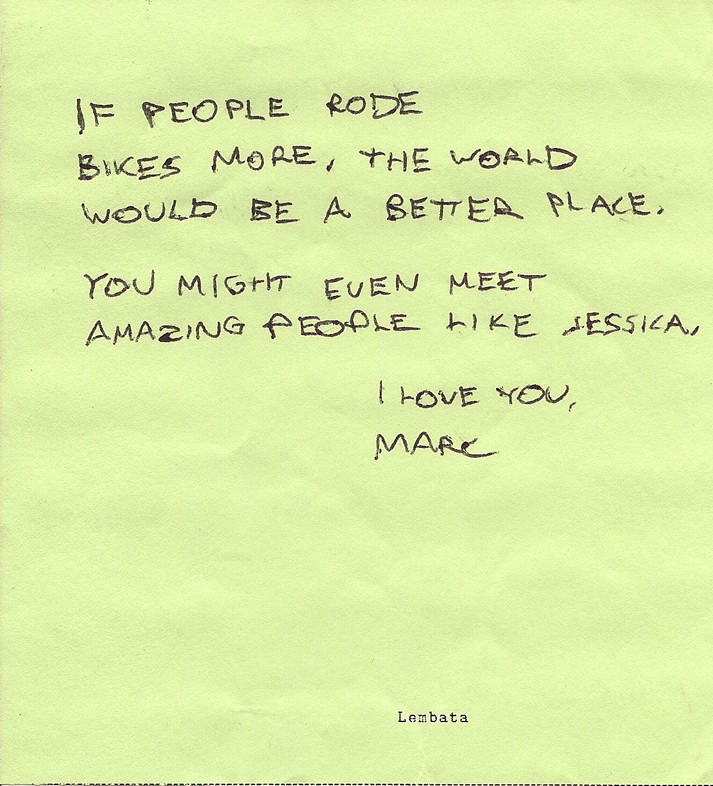 IF PEOPLE RODE
BIKES MORE, THE WORLD
WOULD BE A BETTER PLACE.
YOU MIGHT EVEN MEET
AMAZING PEOPLE LIKE JESSICA.
I LOVE YOU,
MARC
Lembata